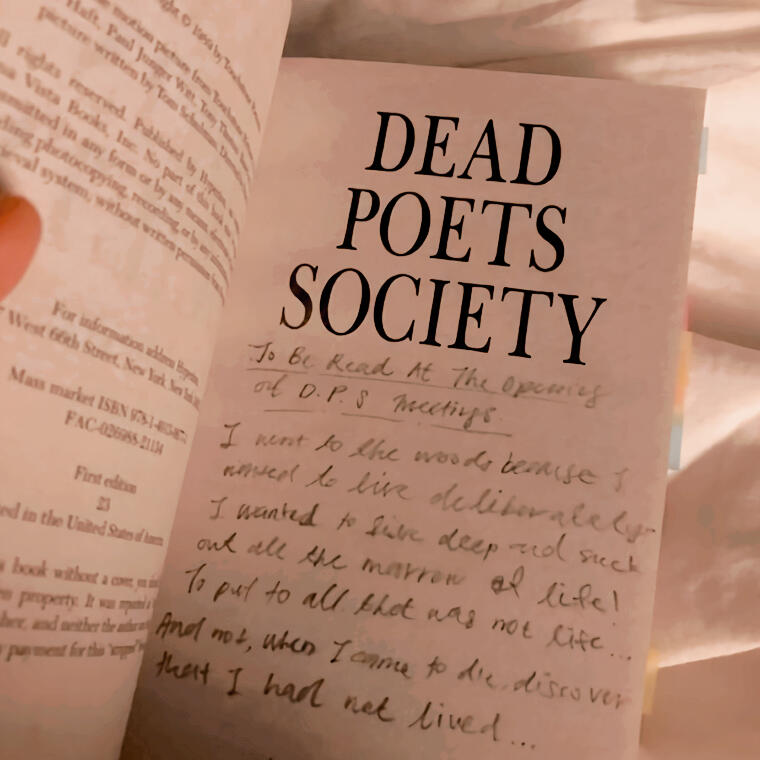 right © 1989 by Touchstone
motion picture from Touchstone
Haft, Paul Junger Witt, Tony Thomas
picture written by Tom Schulman
All rights reserved. Published by Hyperion,
Vista Books, Inc. No part of this book
in any form or by any means
photocopying, recording, or by any
system, without written permission
For information address Hyperion,
West 66th Street, New York, New York
Mass market ISBN
FAC-026988-21134
First edition
23
in the United States of America
book without a cover, you
property. It was reported
and neither the author
payment for this
DEAD
POETS
SOCIETY
To Be Read At The Opening
of D.P.S Meetings.
I went to the woods because I
wanted to live deliberately
I wanted to live deep and suck
out all the marrow of life!
To put to all that was not life...
And not, when I came to die, discover
that I had not lived...